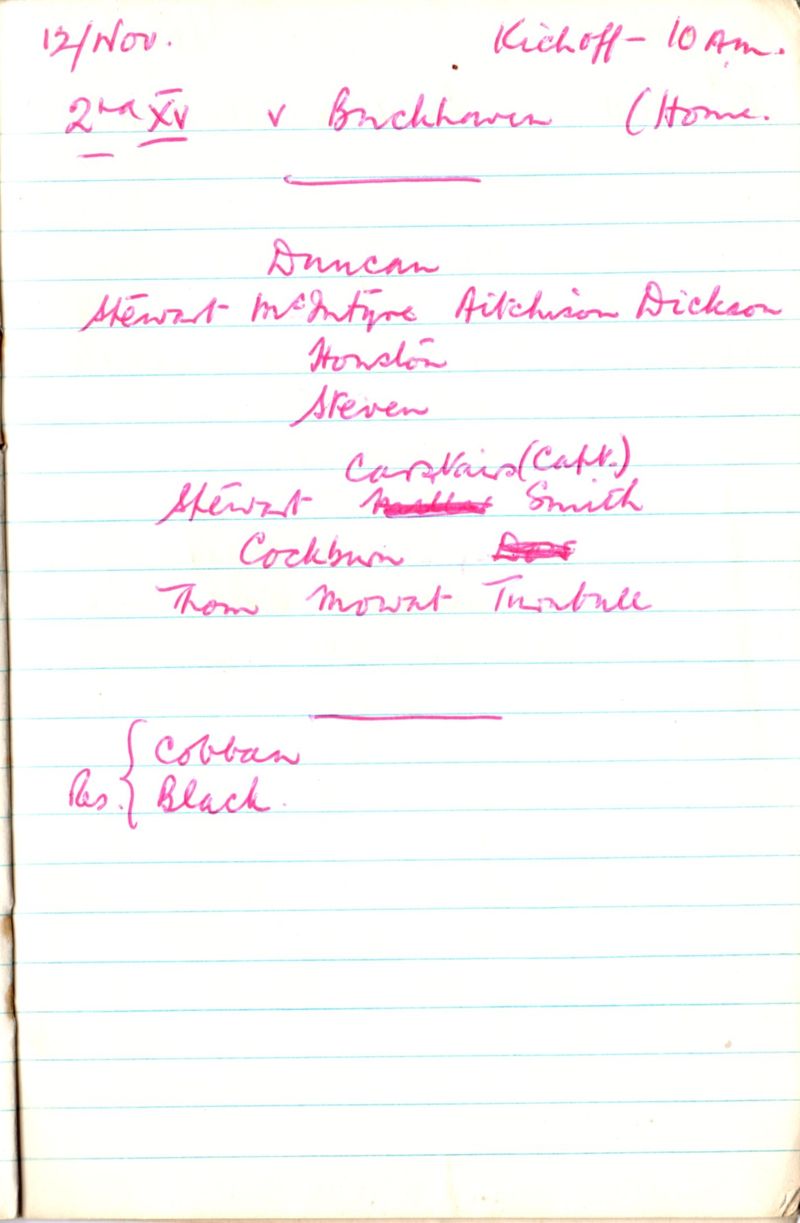 12/Nov. Kickoff - 10 Am.
2nd XV v Buckhaven (Home.
Duncan
Stewart McIntyre Aitchison Dickson
Houston
Steven
Carstairs (Capt.)
Stewart Smith
Cockburn
Thom Mowat Turnbull
Cobban
Res. { Black.